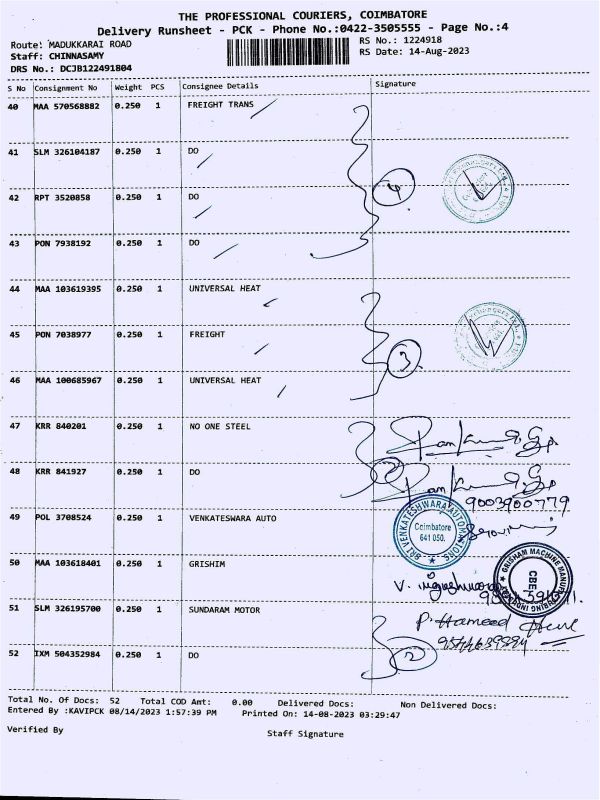 THE PROFESSIONAL COURIERS, COIMBATORE
Delivery Runsheet - PCK - Phone No.:0422-3505555 - Page No.:4
Route: MADUKKARAI ROAD
RS No.: 1224918
Staff: CHINNASAMY
RS Date: 14-Aug-2023
DRS No.: DCJB122491804
S No Consignment No Weight PCS Consignee Details Signature
40 MAA 570568882 0.250 1 FREIGHT TRANS
41 SLM 326104187 0.250 1 DO
42 RPT 3520858 0.250 1 DO
4
43 PON 7938192 0.250 1 DO
44 MAA 103619395 0.250 1 UNIVERSAL HEAT
45 PON 7038977 0.250 1 FREIGHT
3
46 MAA 100685967 0.250 1 UNIVERSAL HEAT
47 KRR 840201 0.250 1 NO ONE STEEL
48 KRR 841927 0.250 1 DO
2
9003900779
49 POL 3708524 0.250 1 VENKATESWARA AUTO
SRI VENKATESHWARA AUTOMATIONS
Coimbatore
641 050.
50 MAA 103618401 0.250 1 GRISHIM
GRISHAM MACHINE MANUFACTURING INDUSTRY
CBE
51 SLM 326195700 0.250 1 SUNDARAM MOTOR
P. Hameed
52 IXM 504352984 0.250 1 DO
2
Total No. Of Docs: 52 Total COD Amt: 0.00 Delivered Docs: Non Delivered Docs:
Entered By :KAVIPCK 08/14/2023 1:57:39 PM Printed On: 14-08-2023 03:29:47
Verified By
Staff Signature